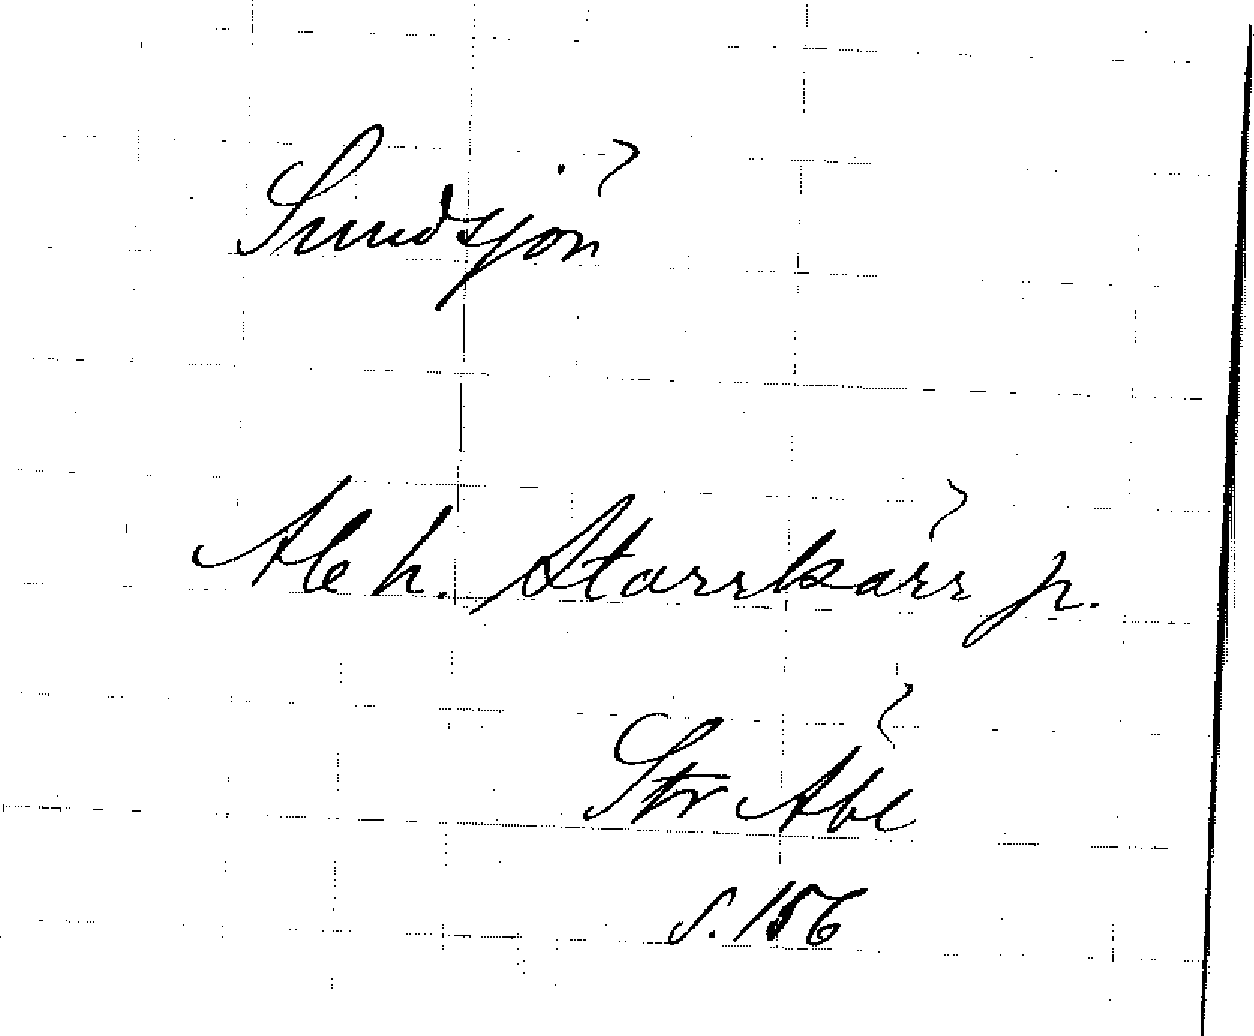 Sundsjön
Ale h. Starrkärr p.
Str Abc
s. 156